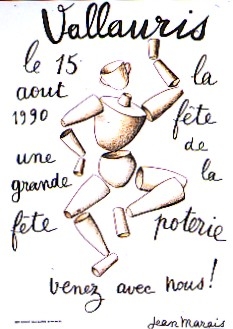 Vallauris
le 15
aout
1990
la
fête
de
la
poterie
une
grande
fête
venez avec nous!
Jean Marais